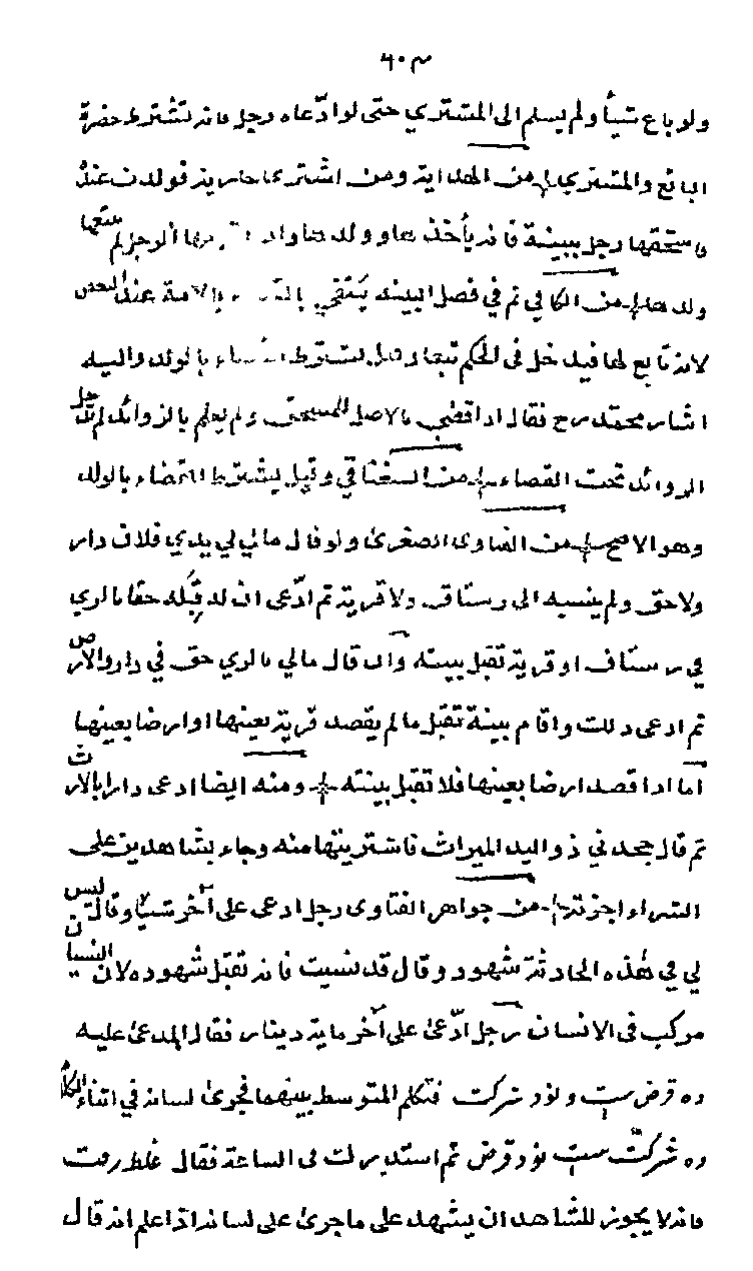 ولو باع شيأ ولم يسلم الى المشتري حتى لو ادّعاه رجل فانه تشترط حضرة
البائع والمشتري من الهداية ومن اشترى جارية فولدت عنده
فاستحقها رجل ببينة فانه يأخذها وولدها وان اقر بها لرجل لم يتبعها
ولدها من الكافي ثم في فصل البينة
لانه تابع لها فيدخل في الحكم تبعا وقيل يشترط القضاء بالولد واليه
اشار محمد رح فقال اذا قضى بالاصل للمستحق ولم يعلم بالزوائد لم تدخل
الزوائد تحت القضاء من السغناقي وقيل يشترط القضاء بالولد
وهو الاصح من الفتاوى الصغرى ولو قال مالي في يدي فلان دار
ولا حق ولم ينسبه الى رستاق ولا قرية ثم ادّعى ان له قِبَله حقا بالري
في رستاق او قرية تقبل بينته وان قال مالي بالري حق في دار والارض
ثم ادعى ذلك واقام بينة تقبل مالم يقصد قرية بعينها او ارضا بعينها
اما اذا قصد ارضا بعينها فلا تقبل بينته ومنه ايضا ادعى دارا بالارث
ثم قال جحدني ذو اليد الميراث فاشتريتها منه وجاء بشاهدين على
الشراء اجزته من جواهر الفتاوى رجل ادعى على آخر شيئا وقال ليس
لي في هذه الحادثة شهود وقال قد نسيت فانه تقبل شهوده لان النسيان
مركب في الانسان رجل ادّعى على آخر ماية دينار فقال المدعى عليه
ده قرض ست ونود شركت فتكلم المتوسط بينهما فجرى لسانه في اثناء الكلام
ده شركت ست نود قرض ثم استدرك في الساعة فقال غلط رفت
فانه لا يجوز للشاهد ان يشهد على ماجرى على لسانه اذا علم انه قال